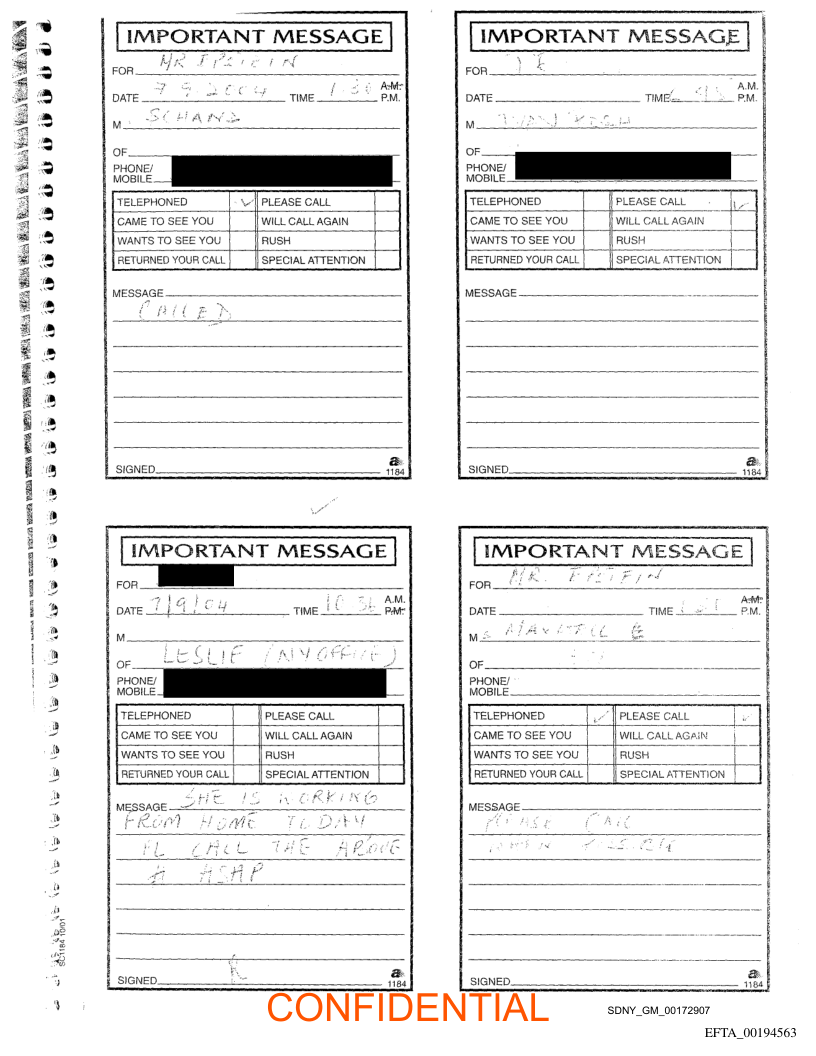 IMPORTANT MESSAGE
FOR MR EPSTEIN
DATE 7 9 2004 TIME 1:30 A.M. P.M.
M
OF
PHONE/
MOBILE
TELEPHONED ✓ PLEASE CALL
CAME TO SEE YOU WILL CALL AGAIN
WANTS TO SEE YOU RUSH
RETURNED YOUR CALL SPECIAL ATTENTION
MESSAGE
CALLED
SIGNED
a
1184
IMPORTANT MESSAGE
FOR JE
DATE TIME A.M. P.M.
M
OF
PHONE/
MOBILE
TELEPHONED PLEASE CALL ✓
CAME TO SEE YOU WILL CALL AGAIN
WANTS TO SEE YOU RUSH
RETURNED YOUR CALL SPECIAL ATTENTION
MESSAGE
SIGNED
a
1184
✓
IMPORTANT MESSAGE
FOR
DATE 7/9/04 TIME 10 36 A.M. P.M.
M
OF LESLIE (NY OFFICE)
PHONE/
MOBILE
TELEPHONED PLEASE CALL
CAME TO SEE YOU WILL CALL AGAIN
WANTS TO SEE YOU RUSH
RETURNED YOUR CALL SPECIAL ATTENTION
MESSAGE SHE IS WORKING
FROM HOME TODAY
PL CALL THE ABOVE
# ASAP
SIGNED
a
1184
IMPORTANT MESSAGE
FOR MR. EPSTEIN
DATE TIME A.M. P.M.
M
OF
PHONE/
MOBILE
TELEPHONED ✓ PLEASE CALL ✓
CAME TO SEE YOU WILL CALL AGAIN
WANTS TO SEE YOU RUSH
RETURNED YOUR CALL SPECIAL ATTENTION
MESSAGE
PLEASE CALL
WHEN
SIGNED
a
1184
SC1184 10/01
CONFIDENTIAL
SDNY_GM_00172907
EFTA_00194563